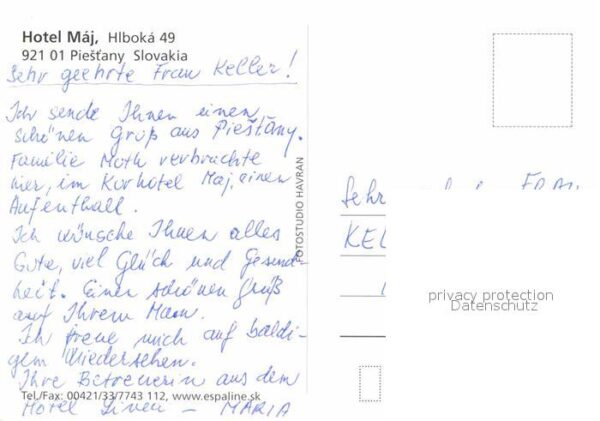 Hotel Máj, Hlboká 49
921 01 Piešťany Slovakia
Sehr geehrte Frau Keller!
Ich sende Ihnen einen
schönen Gruß aus Piešťany.
Familie Moth verbrachte
hier, im Kurhotel Maj, einen
Aufenthalt.
Ich wünsche Ihnen alles
Gute, viel Glück und Gesund-
heit. Einen schönen Gruß
auf Ihrem Mann.
Ich freue mich auf baldi-
gem Wiedersehen.
Ihre Betreuerin aus dem
Tel./Fax: 00421/33/7743 112, www.espaline.sk
Hotel – MARIA
FOTOSTUDIO HAVRAN
Sehr FRAU
KEL
privacy protection
Datenschutz